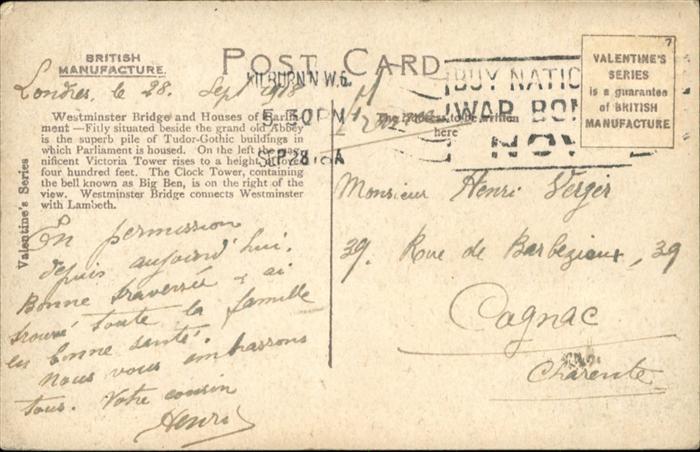 BRITISH
MANUFACTURE.
POST CARD
7
VALENTINE'S
SERIES
is a guarantee
of BRITISH
MANUFACTURE
KILBURN N.W.6.
5.30 PM
SEP 28 18 A
BUY NATIO
WAR BON
NOW
Londres, le 28. Sept 1918
Westminster Bridge and Houses of Parlia-
ment —Fitly situated beside the grand old Abbey
is the superb pile of Tudor-Gothic buildings in
which Parliament is housed. On the left the mag-
nificent Victoria Tower rises to a height of over
four hundred feet. The Clock Tower, containing
the bell known as Big Ben, is on the right of the
view. Westminster Bridge connects Westminster
with Lambeth.
Valentine's Series
The Address to be written
here
En permission
depuis aujourd'hui.
Bonne traversée, ai
trouvé toute la famille
en bonne santé.
Nous vous embrassons
tous. Votre cousin
Henri
Monsieur Henri Verger
39. Rue de Barbezieux, 39
Cognac
Charente